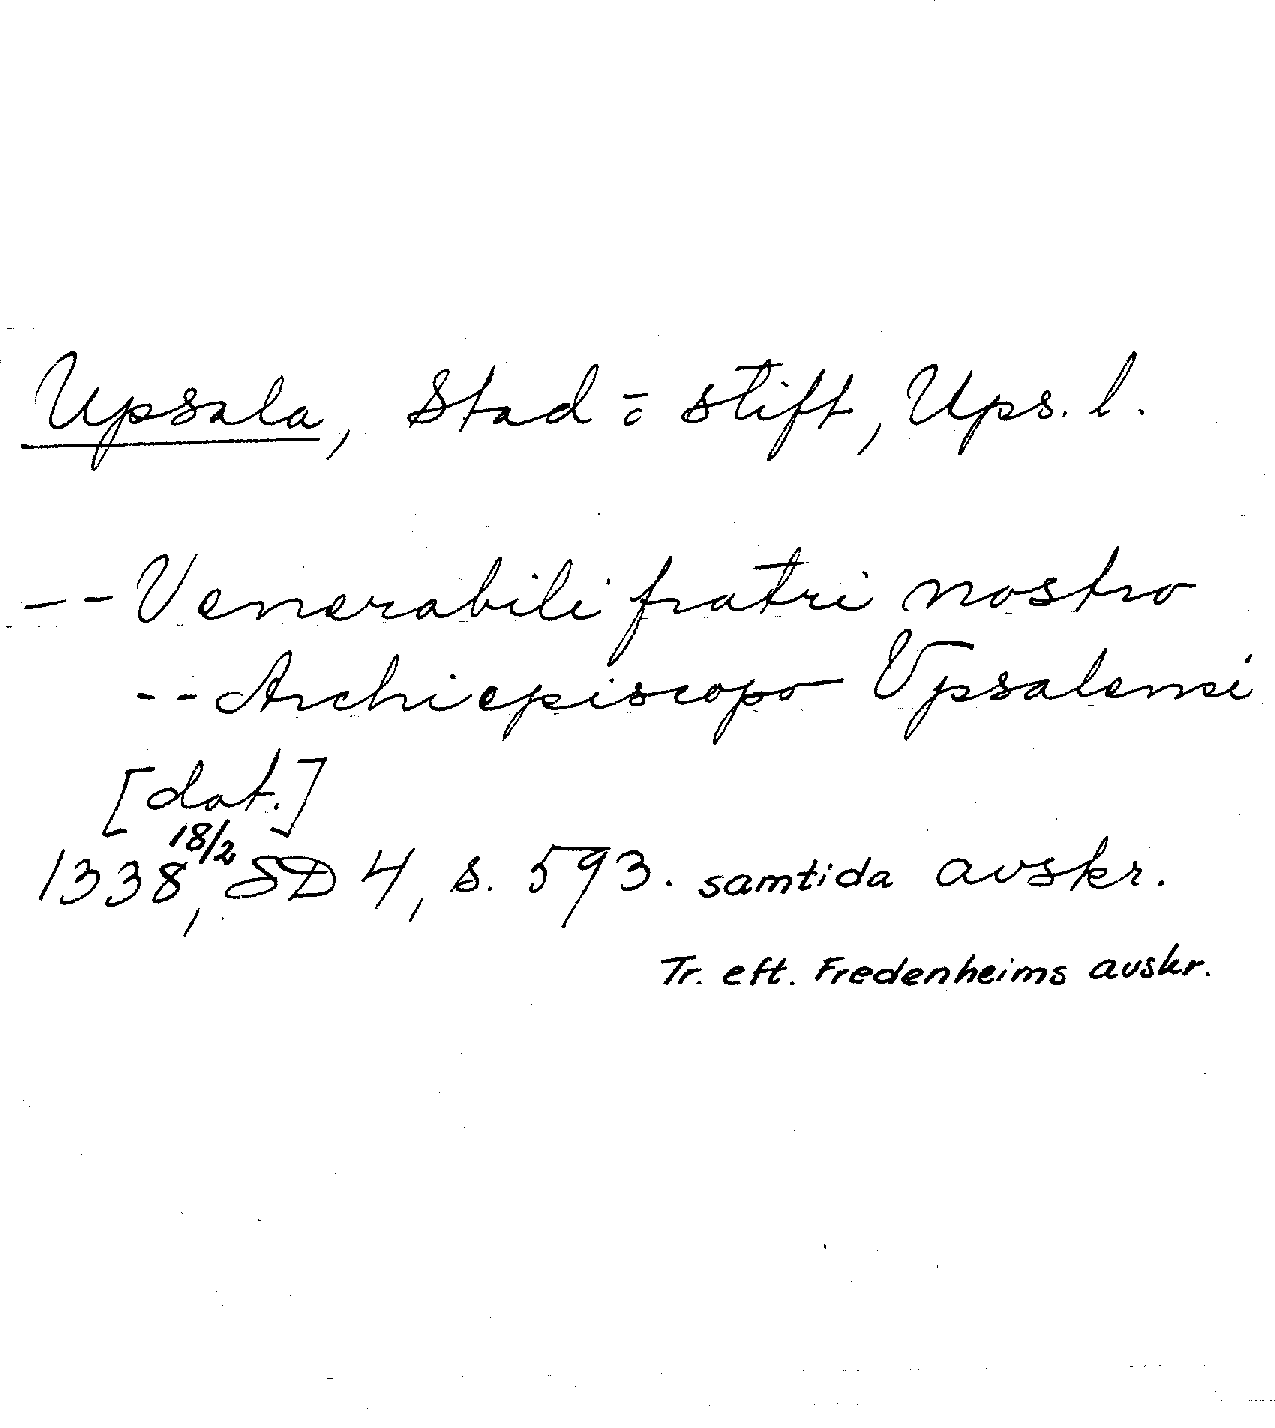 Upsala, Stad o stift, Ups. l.
-- Venerabili fratri nostro
-- Archiepiscopo Vpsalensi
[dat.]
1338 18/2, SD 4, s. 593. samtida avskr.
Tr. eft. Fredenheims avskr.